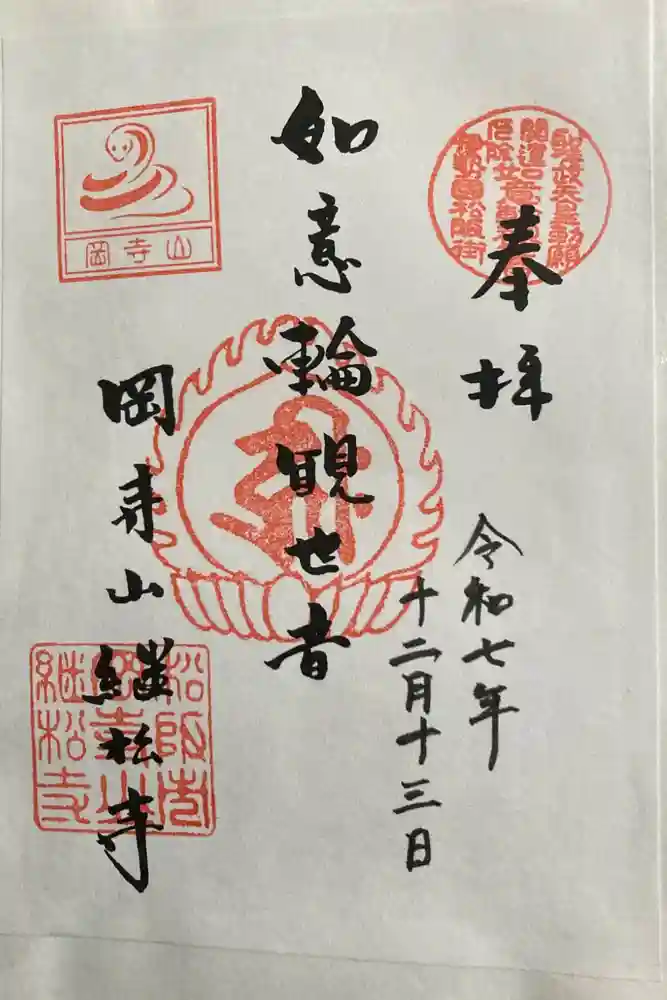 奉拝
令和七年
十二月十三日
如意輪観世音
岡寺山
継松寺
岡寺山
聖武天皇勅願
松阪市
岡寺山
継松寺